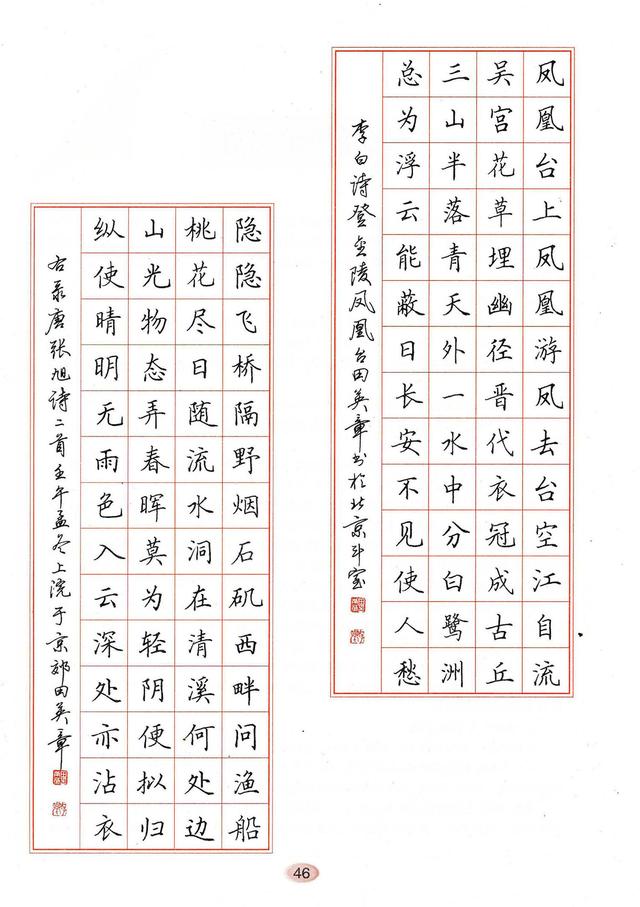 凤凰台上凤凰游凤去台空江自流
吴宫花草埋幽径晋代衣冠成古丘
三山半落青天外一水中分白鹭洲
总为浮云能蔽日长安不见使人愁
李白诗登金陵凤凰台田英章书于北京斗室
隐隐飞桥隔野烟石矶西畔问渔船
桃花尽日随流水洞在清溪何处边
山光物态弄春晖莫为轻阴便拟归
纵使晴明无雨色入云深处亦沾衣
右录唐张旭诗二首壬午孟冬上浣于京郊田英章
46